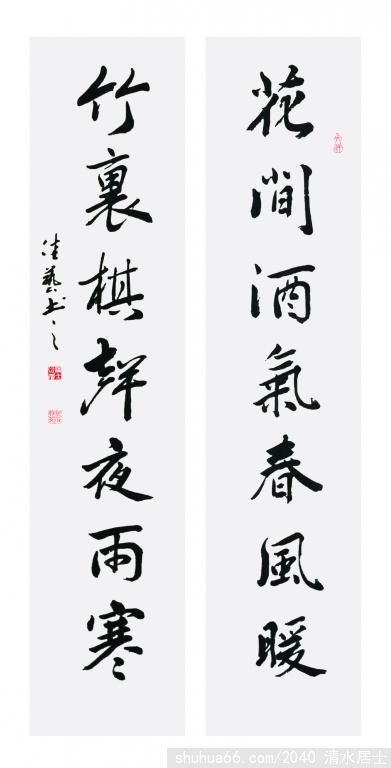 花間酒氣春風暖
竹裏棋聲夜雨寒
佳藝书之
shuhua66.com/2040 清水居士